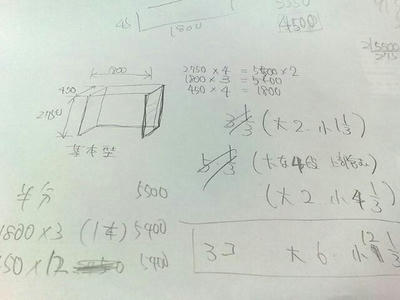 45
1800
5550
4500
2)5500
275
1800
450
2750
基本型
2750 × 4 = 5500 × 2
1800 × 3 = 5400
450 × 4 = 1800
(大 2 小 1 1/3)
(大 2 小 4 1/3)
半分 5500
1800 × 3 (1本) 5400
450 × 12 5400
3コ 大 6 小 12 1/3